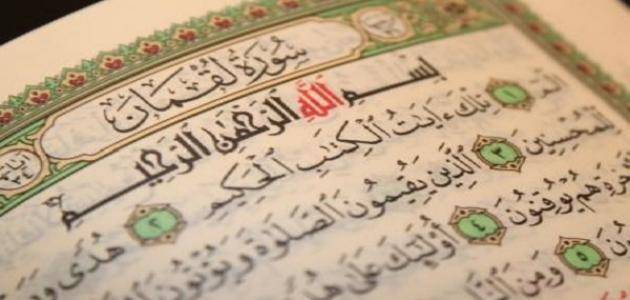 سُورَةُ لُقْمَانَ
بِسْمِ ٱللَّهِ ٱلرَّحْمَٰنِ ٱلرَّحِيمِ
الٓمٓ ١ تِلْكَ ءَايَٰتُ ٱلْكِتَٰبِ ٱلْحَكِيمِ ٢ هُدًى
لِّلْمُحْسِنِينَ ٣ ٱلَّذِينَ يُقِيمُونَ ٱلصَّلَوٰةَ وَيُؤْتُونَ
هُمْ يُوقِنُونَ ٤ أُو۟لَٰٓئِكَ عَلَىٰ
٥ وَمِنَ